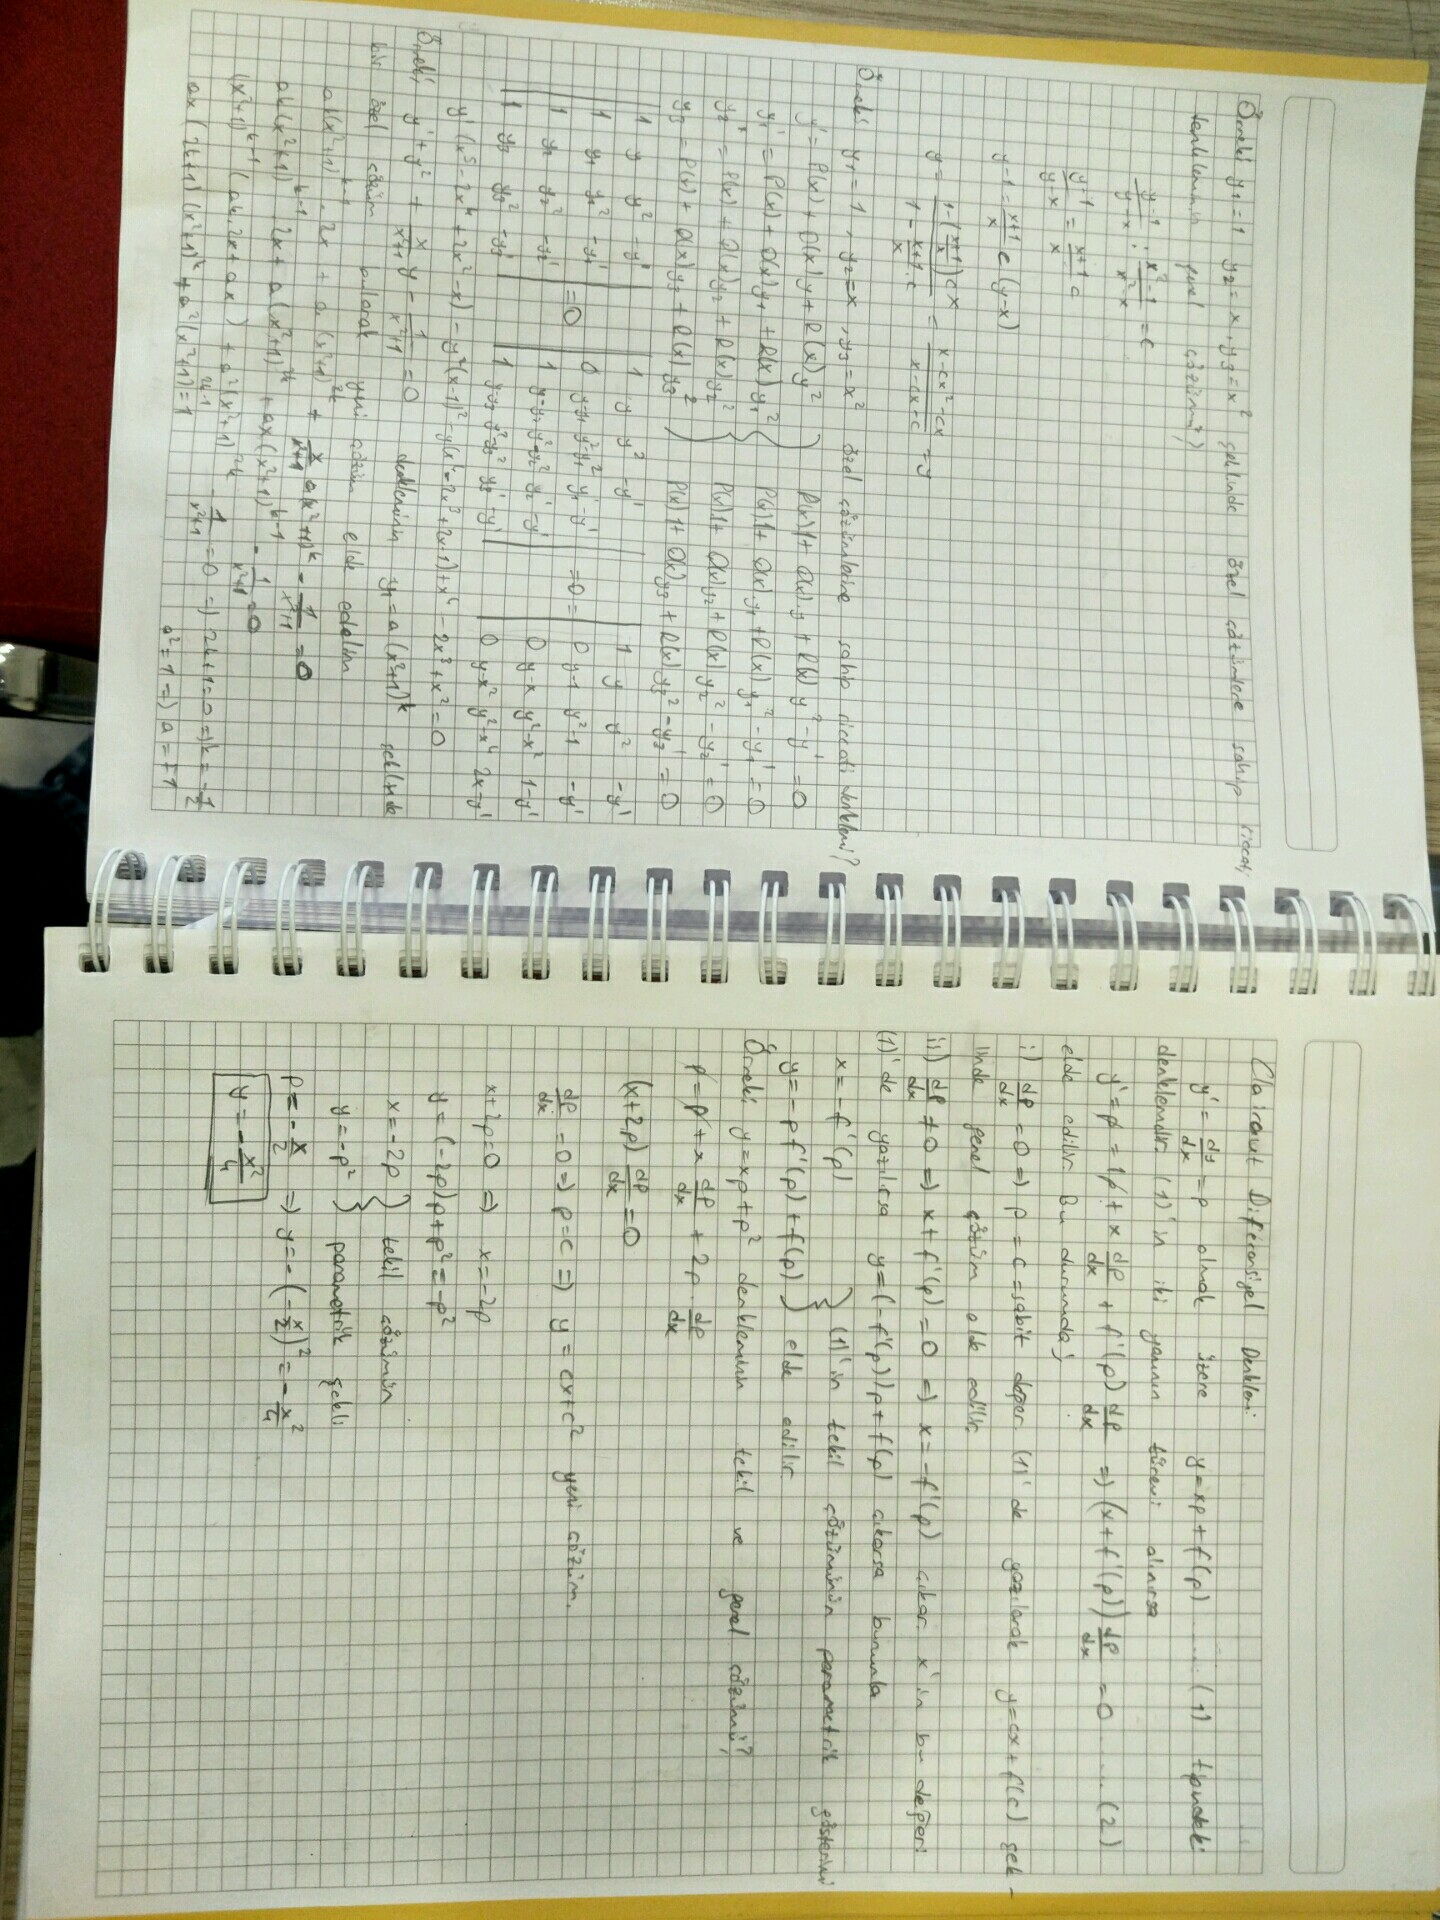 Örnek: y₁=1 y₂=x, y₃=x² şeklinde özel çözümlere sahip riccati
denkleminin genel çözümü?
(y-1)/(y-x) : (x²-1)/(x²-x) = c
(y-1)/(y-x) = (x+1)/x c
y-1 = (x+1)/x c (y-x)
y = (1-((x+1)/x)cx)/(1-(x+1)/x·c) = (x-cx²-cx)/(x-cx-c) = y
Örnek: y₁=1, y₂=x, y₃=x² özel çözümlerine sahip riccati denklemi?
y' = P(x) + Q(x)y + R(x)y² } P(x).1 + Q(x).y + R(x) y² - y' = 0
y₁' = P(x) + Q(x)y₁ + R(x)y₁² P(x).1 + Q(x).y₁ + R(x) y₁² - y₁' = 0
y₂' = P(x) + Q(x)y₂ + R(x)y₂² P(x).1 + Q(x)y₂ + R(x) y₂² - y₂' = 0
y₃ = P(x) + Q(x)y₃ + R(x)y₃² P(x) 1 + Q(x)y₃ + R(x)y₃² - y₃' = 0
| 1 y y² -y' | | 1 y y² -y' | | 1 y y² -y'
| 1 y₁ y₁² -y₁' | =0 | 0 y-y₁ y²-y₁² y₁'-y' | =0= | 0 y-1 y²-1 -y'
| 1 y₂ y₂² -y₂' | | 1 y-y₂ y²-y₂² y₂'-y' | | 0 y-x y²-x² 1-y'
| 1 y₃ y₃² -y₃' | | 1 y-y₃ y²-y₃² y₃'-y' | | 0 y-x² y²-x⁴ 2x-y'
y'(x⁵-2x⁴+2x²-x) - y²(x-1)² - y(x⁴-2x³+2x-1) + x⁴ - 2x³ + x² = 0
Örnek; y' + y² + x/(x²+1) y - 1/(x²+1) = 0 denkleminin y₁ = a(x²+1)ᵏ şeklinde
bir özel çözüm bularak yeni çözüm elde edelim
ak(x²+1)ᵏ⁻¹.2x + a(x²+1)²ᵏ + x/(x²+1) a(x²+1)ᵏ - 1/(x²+1) = 0
ak(x²+1)ᵏ⁻¹.2x + a(x²+1)²ᵏ + ax(x²+1)ᵏ⁻¹ - 1/(x²+1) = 0
(x²+1)ᵏ⁻¹ (ak.2x+ax) + a²(x²+1)²ᵏ - 1/(x²+1) = 0 => 2k+1=0 => k = -1/2
ax(2k+1)(x²+1)ᵏ + a²(x²+1)²ᵏ⁻¹ = 1 a²=1 => a = ∓1
Clairaut Diferansiyel Denklemi
y' = dy/dx = p olmak üzere y = xp + f(p) ..... (1) tipindeki
denklemdir. (1)'in iki yanının türevi alınırsa
y' = p = 1p + x dp/dx + f'(p) dp/dx => (x+f'(p)) dp/dx = 0 ..... (2)
elde edilir. Bu durumda;
i) dp/dx = 0 => p = c = sabit değer. (1)'de yazılarak y = cx + f(c) şek-
linde genel çözüm elde edilir.
ii) dp/dx ≠ 0 => x + f'(p) = 0 => x = -f'(p) çıkar. x'in bu değeri
(1)'de yazılırsa y = (-f'(p))p + f(p) çıkarsa bununla
x = -f'(p) } (1)'in tekil çözümünün parametrik gösterimi
y = -p f'(p) + f(p) } elde edilir.
Örnek: y = xp + p² denkleminin tekil ve genel çözümü?
p = p + x dp/dx + 2p . dp/dx
(x+2p) dp/dx = 0
dp/dx = 0 => p = c => y = cx+c² yeni çözüm.
x+2p=0 => x = -2p
y = (-2p)p + p² = -p²
x = -2p } tekil çözümün
y = -p² } parametrik şekli
p = -x/2 => y = -(-x/2)² = -x²/4
y = -x²/4